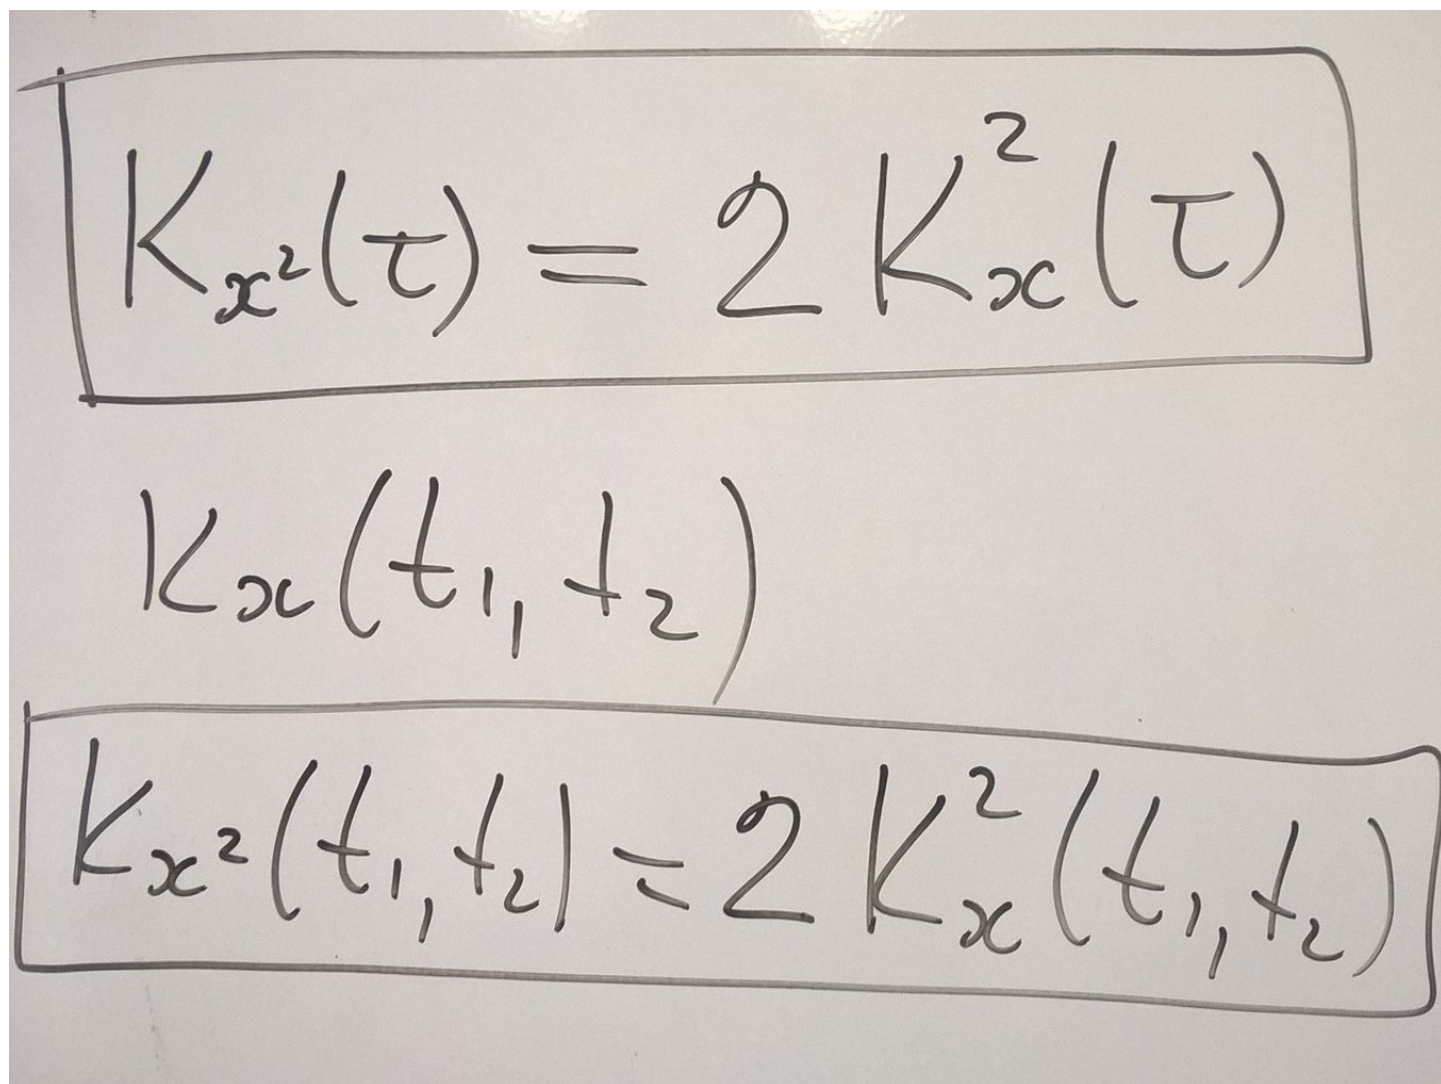 K_{x²}(τ) = 2 K_x²(τ)
K_x(t₁, t₂)
K_{x²}(t₁, t₂) = 2 K_x²(t₁, t₂)